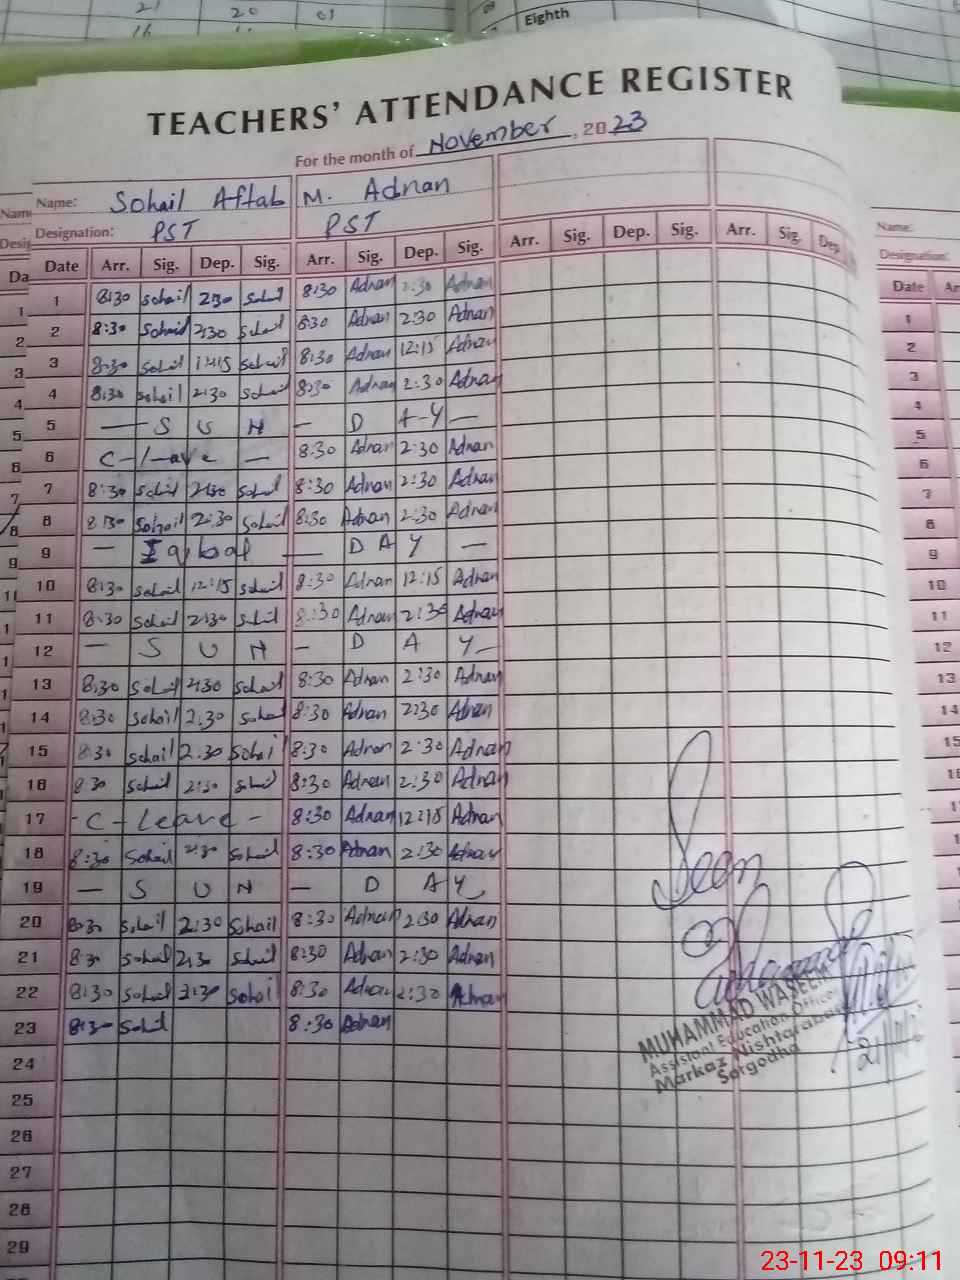 21 20 01
16
09 Eighth
TEACHERS' ATTENDANCE REGISTER
For the month of November, 2023
Name: Sohail Aftab M. Adnan
Designation: PST PST
Date Arr. Sig. Dep. Sig. Arr. Sig. Dep. Sig. Arr. Sig. Dep. Sig. Arr. Sig. Dep.
1 8:30 Sohail 2:30 Sohail 8:30 Adnan 2:30 Adnan
2 8:30 Sohail 2:30 Sohail 8:30 Adnan 2:30 Adnan
3 8:30 Sohail 12:15 Sohail 8:30 Adnan 12:15 Adnan
4 8:30 Sohail 2:30 Sohail 8:30 Adnan 2:30 Adnan
5 — S U N — D A-Y —
6 C-Leave — 8:30 Adnan 2:30 Adnan
7 8:30 Sohail 2:30 Sohail 8:30 Adnan 2:30 Adnan
8 8:30 Sohail 2:30 Sohail 8:30 Adnan 2:30 Adnan
9 — Iqbal — D A Y —
10 8:30 Sohail 12:15 Sohail 8:30 Adnan 12:15 Adnan
11 8:30 Sohail 2:30 Sohail 8:30 Adnan 2:30 Adnan
12 — S U N — D A Y —
13 8:30 Sohail 2:30 Sohail 8:30 Adnan 2:30 Adnan
14 8:30 Sohail 2:30 Sohail 8:30 Adnan 2:30 Adnan
15 8:30 Sohail 2:30 Sohail 8:30 Adnan 2:30 Adnan
16 8:30 Sohail 2:30 Sohail 8:30 Adnan 2:30 Adnan
17 - C - Leave - 8:30 Adnan 12:15 Adnan
18 8:30 Sohail 2:30 Sohail 8:30 Adnan 2:30 Adnan
19 — S U N — D A Y
20 8:30 Sohail 2:30 Sohail 8:30 Adnan 2:30 Adnan
21 8:30 Sohail 2:30 Sohail 8:30 Adnan 2:30 Adnan
22 8:30 Sohail 2:30 Sohail 8:30 Adnan 2:30 Adnan
23 8:30 Sohail 8:30 Adnan
24
25
26
27
28
29
Seen
MUHAMMAD WASEEM
Assistant Education Officer
Markaz Nishtarabad
Sargodha
Name:
Designation:
Date
1
2
3
4
5
6
7
8
9
10
11
12
13
14
15
23-11-23 09:11